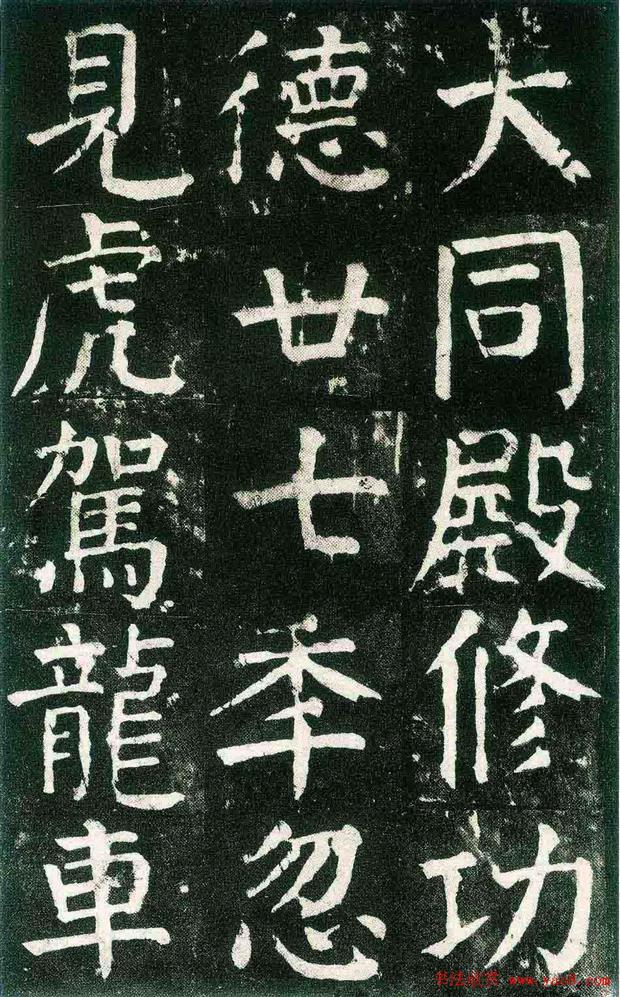 大同殿修功
德廿七秊忽
見虎駕龍車
书法欣赏 www.yac8.com